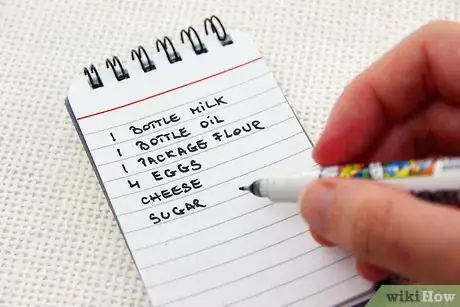 1 BOTTLE MILK
1 BOTTLE OIL
1 PACKAGE FLOUR
4 EGGS
CHEESE
SUGAR
wikiHow